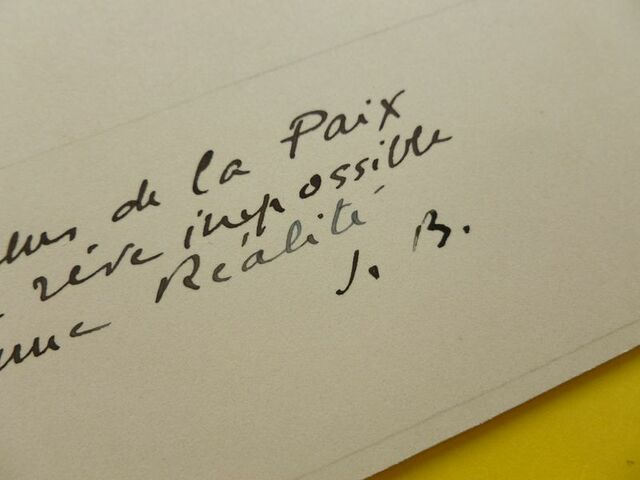 de la Paix
rêve impossible
une Réalité
J. B.